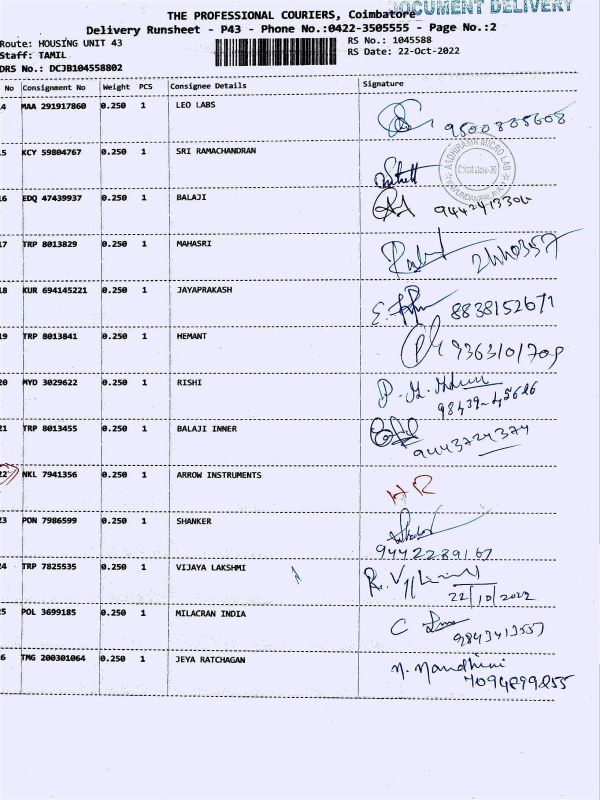 DOCUMENT DELIVERY
THE PROFESSIONAL COURIERS, Coimbatore
Delivery Runsheet - P43 - Phone No.:0422-3505555 - Page No.:2
Route: HOUSING UNIT 43
RS No.: 1045588
Staff: TAMIL
RS Date: 22-Oct-2022
DRS No.: DCJB104558802
No Consignment No Weight PCS Consignee Details Signature
4 MAA 291917860 0.250 1 LEO LABS
9500835608
5 KCY 59804767 0.250 1 SRI RAMACHANDRAN
6 EDQ 47439937 0.250 1 BALAJI
9442413306
17 TRP 8013829 0.250 1 MAHASRI
2440357
18 KUR 694145221 0.250 1 JAYAPRAKASH
8838152671
19 TRP 8013841 0.250 1 HEMANT
9363101709
20 MYD 3029622 0.250 1 RISHI
98439-45626
21 TRP 8013455 0.250 1 BALAJI INNER
9443724374
22 NKL 7941356 0.250 1 ARROW INSTRUMENTS
HR
23 PON 7986599 0.250 1 SHANKER
9442289167
24 TRP 7825535 0.250 1 VIJAYA LAKSHMI
22/10/2022
25 POL 3699185 0.250 1 MILACRAN INDIA
9843413557
6 TMG 200301064 0.250 1 JEYA RATCHAGAN
N. Nandhini
7094899855